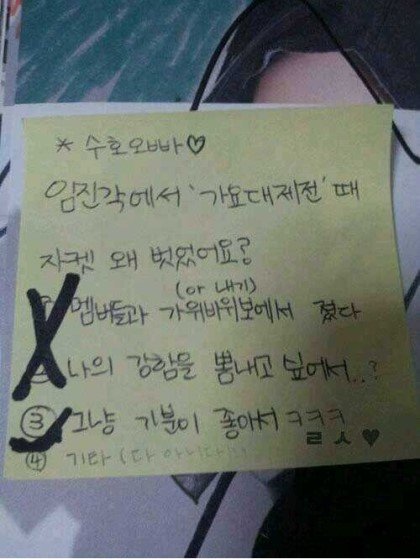 * 수호오빠♡
임진각에서 '가요대제전' 때
자켓 왜 벗었어요?
(or 내기)
멤버들과 가위바위보에서 졌다
나의 강함을 뽐내고 싶어서..?
③ 그냥 기분이 좋아서 ㅋㅋㅋ
ㄹㅅ♥
④ 기타 (다 아니다!!)